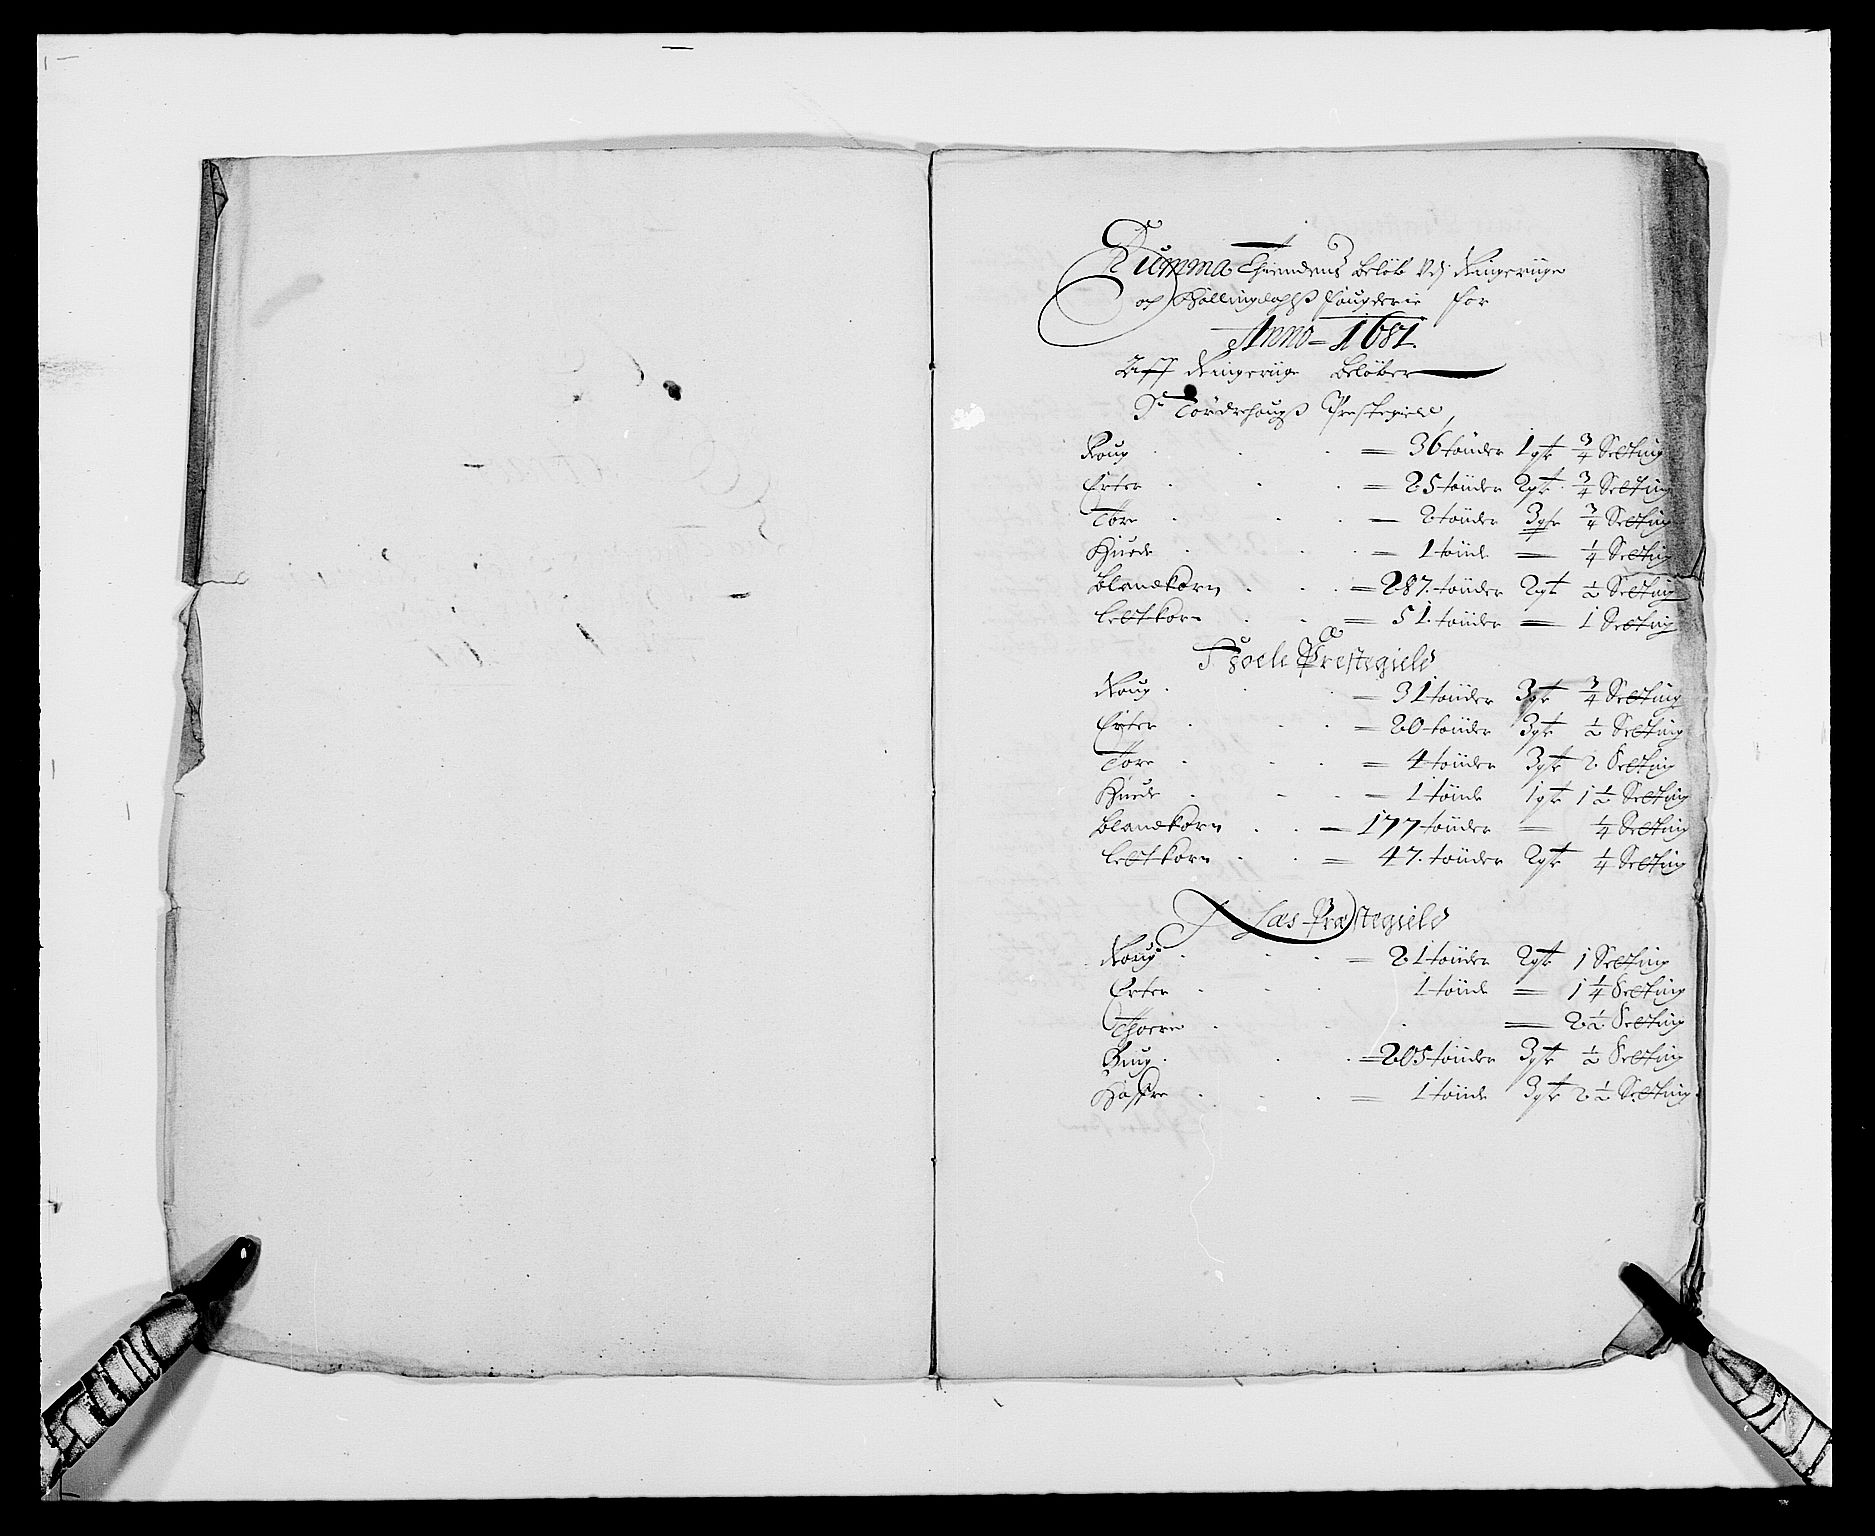 Summa Thiendens beløb Vdj Ringeriige
og Hallingdahlß fougderie for
Anno = 1681.
Aff Ringeriige beløber
J Nordrehougß Prestegield,
Roug = 36 tønder 1 qtr 3/4 Setting
Erter = 25 tønder 2 qtr 3/4 Setting
Tore = 2 tønder 3 qtr 3/4 Setting
Huede = 1 tønde = 1/4 Setting
blandkorn = 287. tønder 2 qt 1/2 Setting
lettkorn = 51. tønder = 1 Setting
J Hoele Prestegield
Roug = 31 tønder 3 qtr 3/4 Setting
Erter = 20 tønder 3 qtr 1/2 Setting
Tore = 4 tønder 3 qtr 2 Setting
Huede = 1 tønde 1 qtr 1 1/2 Setting
blandkorn = 177 tønder = 1/4 Setting
lettkorn = 47. tønder 2 qtr 1/4 Setting
J Næs Præstegield
Roug = 21 tønder 2 qtr 1 Setting
Erter 1 tønde = 1 1/4 Setting
Thoere = 2 1/2 Setting
Biug = 205 tønder 3 qtr 1/2 Setting
Haffre = 1 tønde 3 qtr 2 1/2 Setting